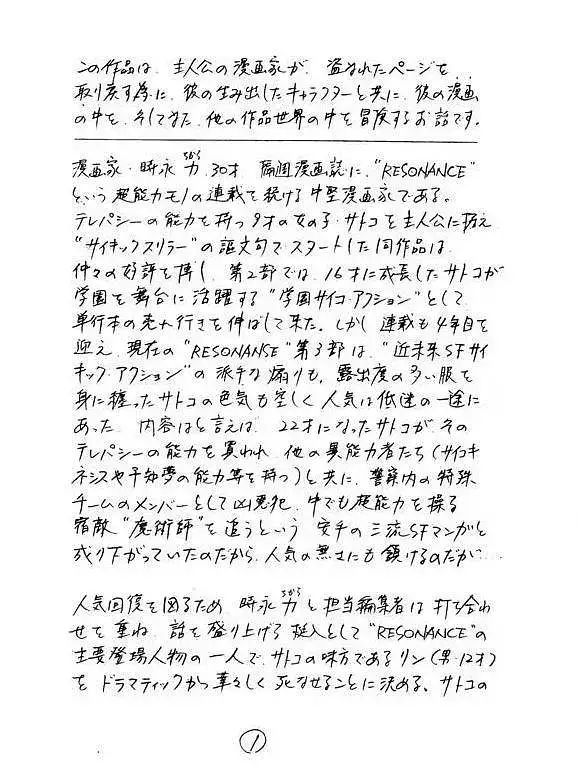 この作品は、主人公の漫画家が、盗まれたページを
取り戻す為に、彼の生み出したキャラクターと共に、彼の漫画
の中を、そしてまた、他の作品世界の中を冒険するお話です。
漫画家・時永 力、30才、隔週漫画誌に、“RESONANCE”
ちから
という超能力モノの連載を続ける中堅漫画家である。
テレパシーの能力を持つ9才の女の子・サトコを主人公に据え
“サイキックスリラー”の謳文句でスタートした同作品は、
仲々の好評を博し、第2部では、16才に成長したサトコが
学園を舞台に活躍する“学園サイコ・アクション”として、
単行本の売れ行きを伸ばして来た。しかし、連載も4年目を
迎え、現在の“RESONANSE”第3部は、“近未来SFサイ
キック・アクション”の派手な煽りも、露出度の多い服を
身に纏ったサトコの色気も空しく、人気は低迷の一途に
あった。内容はと言えば、22才になったサトコがその
テレパシーの能力を買われ、他の異能力者たち(サイコキ
ネシスや予知夢の能力等を持つ)と共に、警察内の特殊
チームのメンバーとして凶悪犯、中でも超能力を操る
宿敵“魔術師”を追うという、安手の三流SFマンガと
成り下がっていたのだから、人気の無さにも頷けるのだが…
人気回復を図るため、時永 力と担当編集者は打ち合わ
ちから
せを重ね、話を盛り上げる梃入として“RESONANCE”の
主要登場人物の一人で、サトコの味方であるリン(男・12才)
を、ドラマティックかつ華々しく死なせることに決める。サトコの
1